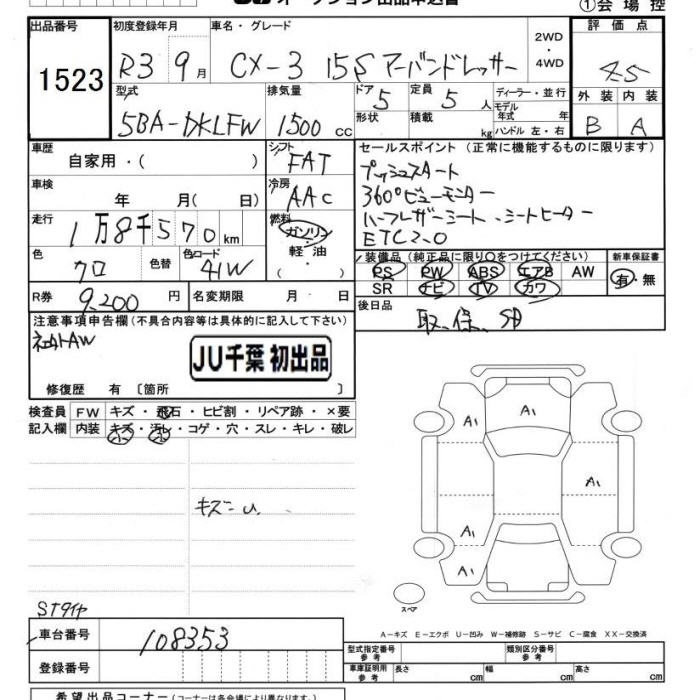 ①会場控
出品番号 初度登録年月 車名・グレード 2WD ・ 4WD 評価点
1523 R3 9月 CX-3 15S アーバンドレッサー 4.5
型式 排気量 ドア 定員 ディーラー・並行 外装 内装
5BA-DKLFW 1500 cc 5 5人 モデル年式 年 B A
形状 積載 kg ハンドル 左・右
車歴 シフト セールスポイント (正常に機能するものに限ります)
自家用・( ) FAT プッシュスタート
車検 冷房 360°ビューモニター
年 月( 日) AAC ハーフレザーシート、シートヒーター
走行 燃料 ETC2.0
1万8千570km ガソリン
軽・油
色 色替 色コード 装備品 (純正品に限り○をつけてください) 新車保証書
クロ 41W PS PW ABS エアB AW 有・無
SR ナビ TV カワ
R券 9,200円 名変期限 月 日 後日品
取、保、SD
注意事項申告欄(不具合内容等は具体的に記入して下さい)
社外AW
JU千葉 初出品
修復歴 有 〔箇所 〕
検査員 FW キズ・飛石・ヒビ割・リペア跡・×要
記入欄 内装 キズ・汚レ・コゲ・穴・スレ・キレ・破レ
A1 A1
A1
キズ小
A1
A1
スペア
STタイヤ
A-キズ E-エクボ U-凹み W-補修跡 S-サビ C-腐食 XX-交換済
車台番号 108353
型式指定番号 参考 類別区分番号 参考
登録番号 車庫証明用 参考 長さ cm 幅 cm 高さ cm
希望出品コーナー (コーナーは各会場により異なります。)